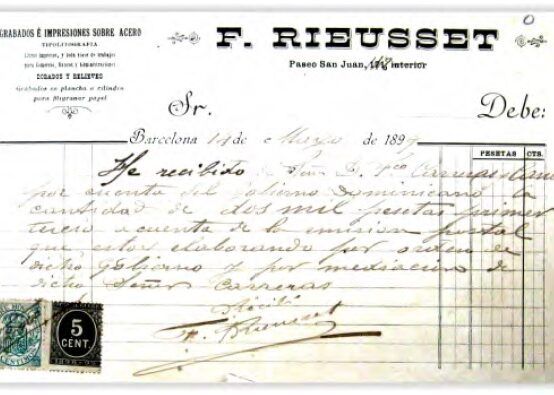 GRABADOS É IMPRESIONES SOBRE ACERO
TIPOLITOGRAFIA
para Comercio, Bancos y Administraciones
DORADOS Y RELIEVES
Grabados en plancha o cilindro
para filigranar papel
F. RIEUSSET
Paseo San Juan, interior
Sr. Debe:
Barcelona 14 de Marzo de 1899
PESETAS CTS.
He recibido de D. Carreras
por cuenta del gobierno Dominicano la
cantidad de dos mil pesetas primer
a cuenta de la emision postal
que estoy elaborando por orden de
dicho Gobierno y por mediacion de
dicho Señor Carreras
Recibí
F. Rieusset
5
CENT.